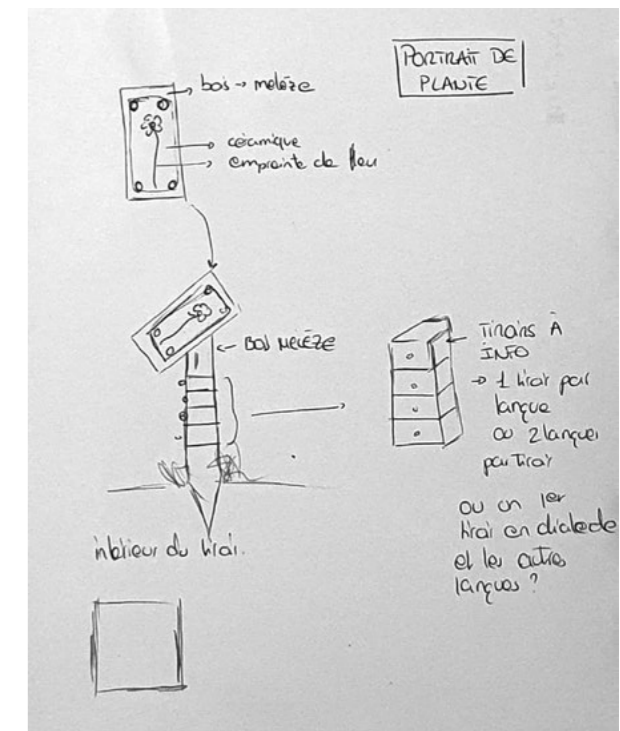 PORTRAIT DE
PLANTE
bois → melèze
céramique
empreinte de fleur
← BOIS MELÈZE
TIROIRS À
INFO
→ 1 tiroir par
langue
ou 2 langues
par tiroir
ou un 1er
tiroir en dialecte
et les autres
langues ?
intérieur du tiroir.